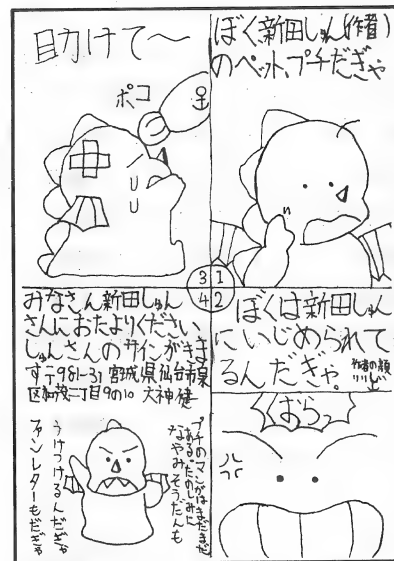 ぼく、新田しゅん(作者)
のペット、プチだぎゃ
1
ぼくは新田しゅん
にいじめられて
るんだぎゃ。
作者の顔
ばらっ
2
助けて〜
ポコ
3
みなさん新田しゅん
さんにおたよりください
しゅんさんのサインがきま
す〒981-31 宮城県仙台市泉
区加茂二丁目9の10 大神健
プチのマンガはまだまだ
ある。たのしみに
なやみそうだんも
うけつけるんだぎゃ
ファンレターもだぎゃ
4